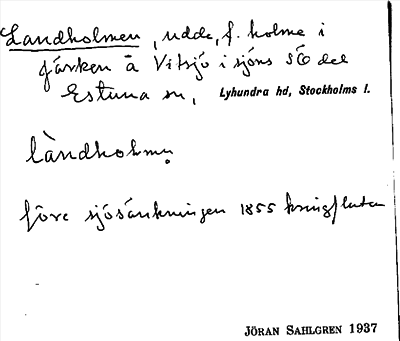 Landholmen, udde, f. holme i
Järken å Vitsjö i sjöns SÖ del
Estuna sn, Lyhundra hd, Stockholms l.
làndholmen
före sjösänkningen 1855 kringfluten
JÖRAN SAHLGREN 1937